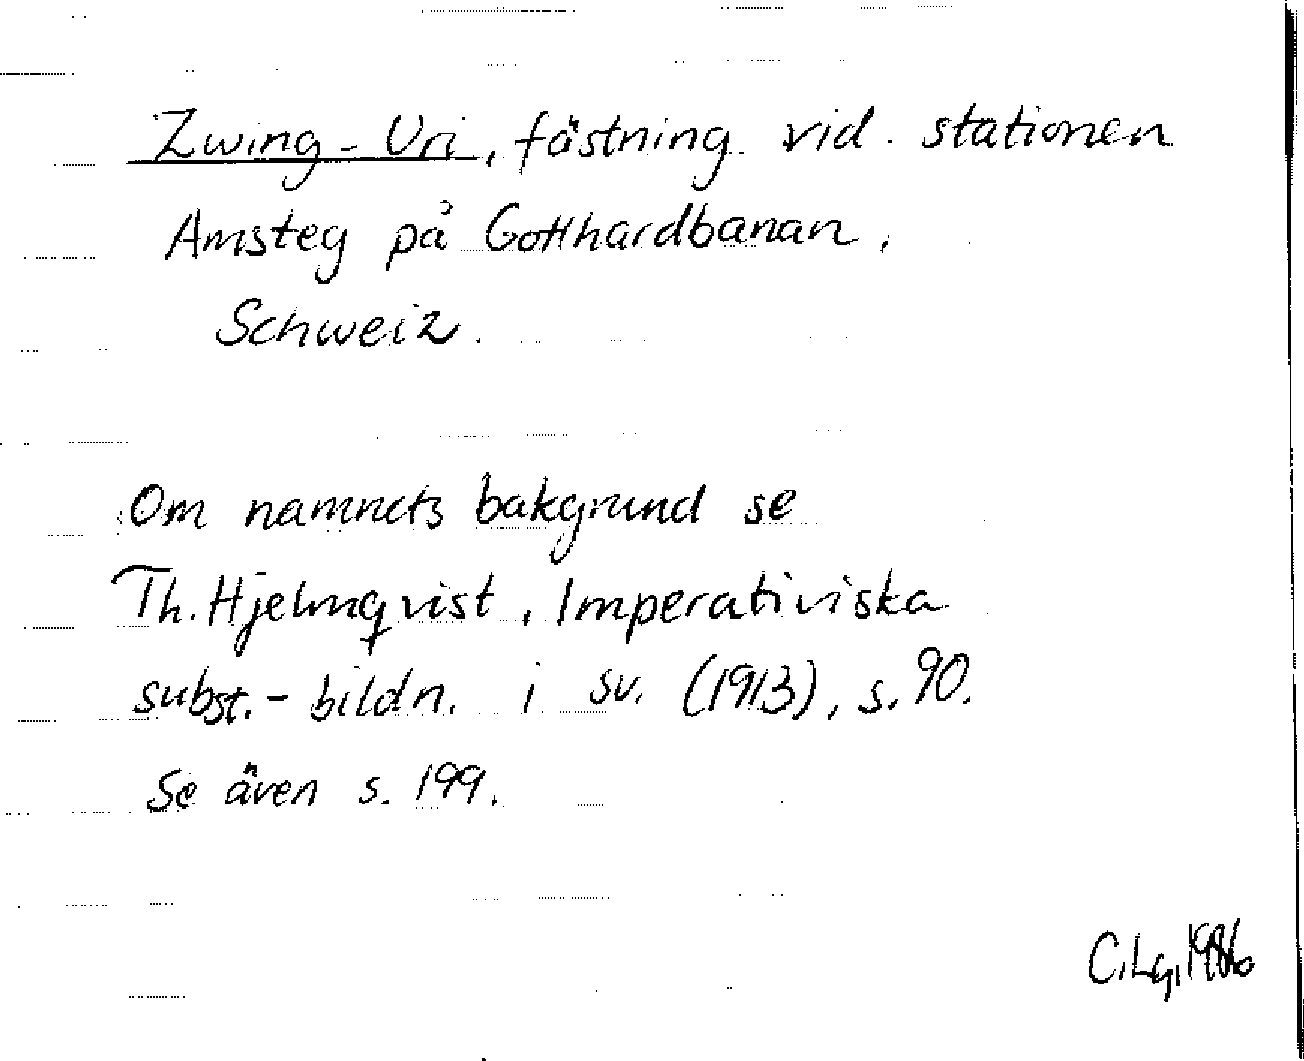 Zwing-Uri, fästning vid stationen
Amsteg på Gotthardbanan,
Schweiz.
Om namnets bakgrund se
Th. Hjelmqvist, Imperativiska
subst.-bildn. i sv. (1913), s. 90.
Se även s. 199.
C.Lg, 1986